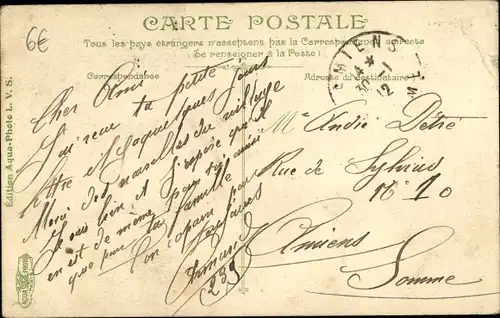 6€
CARTE POSTALE
Tous les pays étrangers n'acceptent pas la Correspondance au recto
(Se renseigner à la Poste)
Correspondance
Adresse du destinataire
Edition Aqua-Photo L. V. S.
Cher Ami
J'ai reçu ta petite
lettre il y a quelques jours
Merci des nouvelles du village
Je suis bien et j'espère qu'il
en est de même pour toi ainsi
que pour ta famille
Ton
Armand
289
Mr André Détré
Rue de Sylvius
No 10
Amiens
Somme
AMIENS
30-1
12